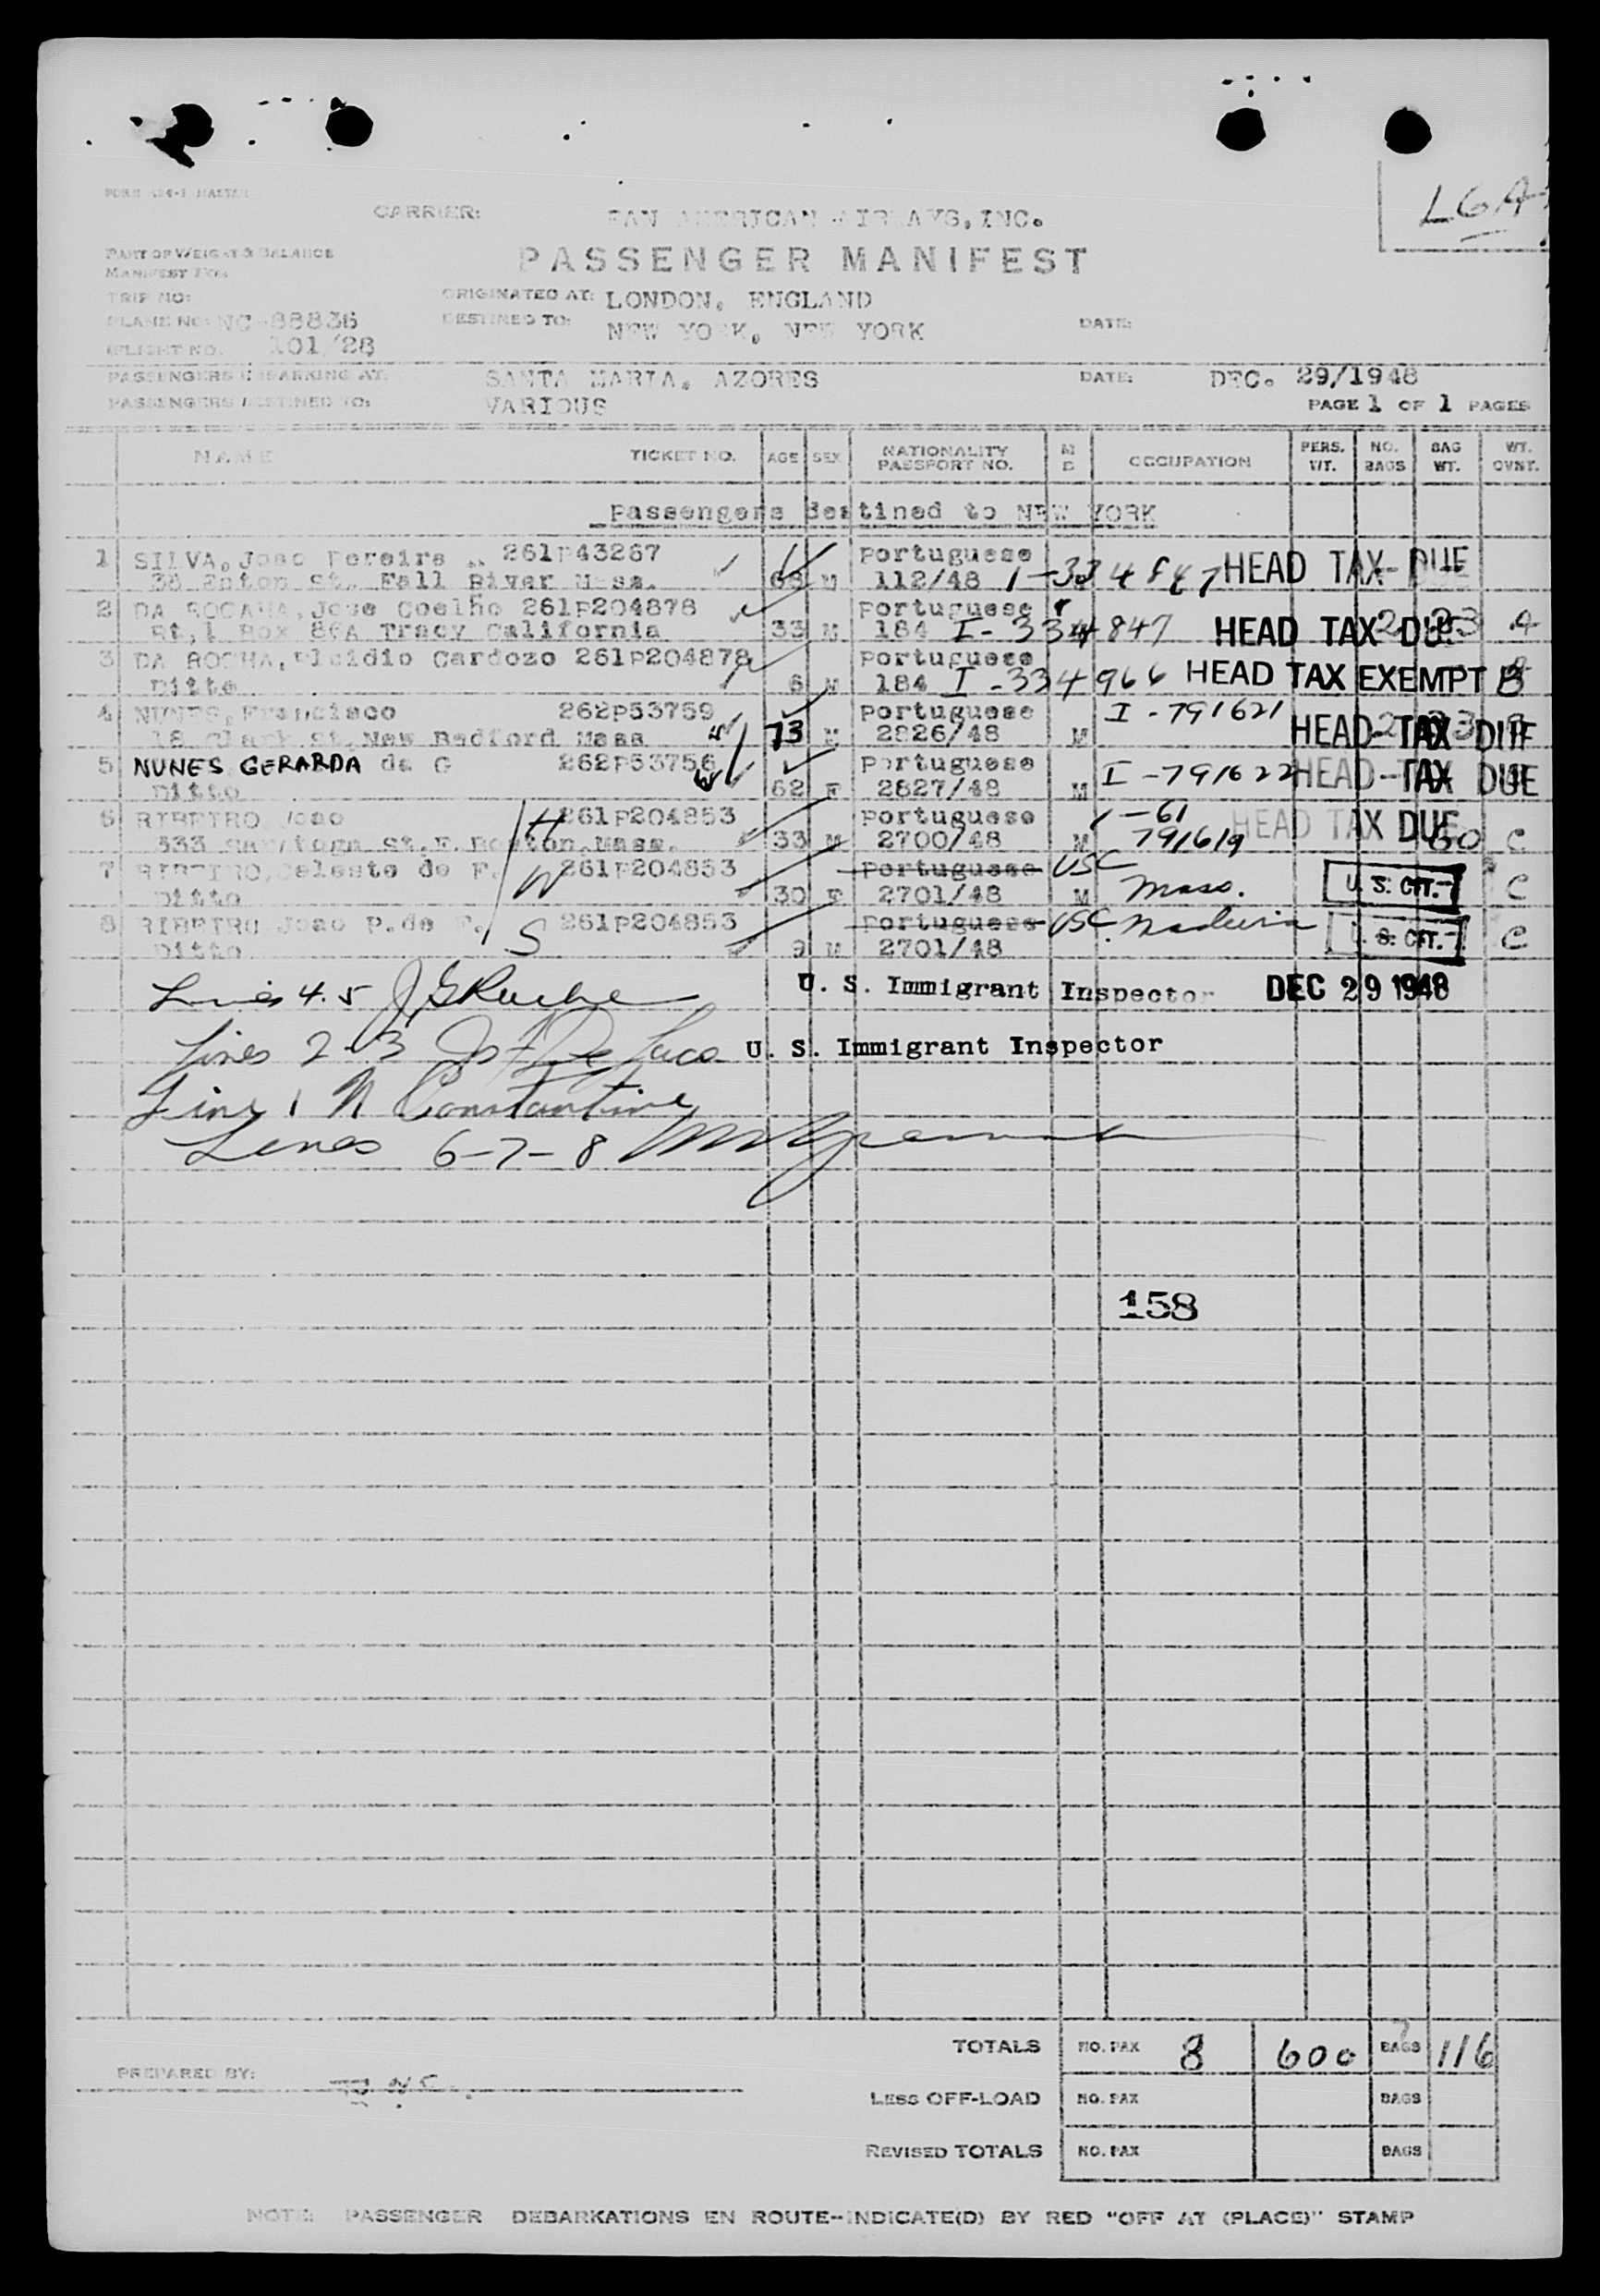 LGA
CARRIER: PAN AMERICAN AIRWAYS, INC.
PART OF WEIGHT & BALANCE
PASSENGER MANIFEST
MANIFEST
TRIP NO: ORIGINATED AT: LONDON, ENGLAND
PLANE NO: NC-88836 DESTINED TO: NEW YORK, NEW YORK DATE:
FLIGHT NO. 101/28
PASSENGERS EMBARKING AT: SANTA MARIA, AZORES DATE: DEC. 29/1948
PASSENGERS DESTINED TO: VARIOUS PAGE 1 OF 1 PAGES
NAME TICKET NO. AGE SEX NATIONALITY PASSPORT NO. M S OCCUPATION PERS. WT. NO. BAGS BAG WT. WT. OVNT.
Passengers destined to NEW YORK
1 SILVA, Joao Pereira 261P43267 Portuguese
St. Fall River Mass. 68 M 112/48 HEAD TAX DUE
2 Jose Coelho 261P204878 Portuguese
Rt, 1 Box 86A Tracy California 33 M 184 I-334847 HEAD TAX DUE
3 DA ROCHA, Plcidio Cardozo 261P204878 Portuguese
Ditto 6 M 184 I-334966 HEAD TAX EXEMPT
4 NUNES, Francisco 262P53759 Portuguese I-791621
18 Clark St, New Bedford Mass 73 M 2826/48 M HEAD TAX DUE
5 NUNES GERARDA de G 262P53756 Portuguese I-791622 HEAD TAX DUE
Ditto 62 F 2827/48 M
6 RIBEIRO Joao H 261P204853 Portuguese HEAD TAX DUE
333 Saratoga St. E. Boston, Mass. 33 M 2700/48 M 791619 60 C
7 RIBEIRO, Celeste de F. W 261P204853 Portuguese USC
Ditto 30 F 2701/48 M Mass. U. S. CIT. C
8 RIBEIRO Joao P. de F. S 261P204853 Portuguese USC Madeira
Ditto 9 M 2701/48 U. S. CIT. C
Lines 4.5 U. S. Immigrant Inspector DEC 29 1948
Lines 2-3 U. S. Immigrant Inspector
Line 1 N Constantine
Lines 6-7-8
158
TOTALS NO. PAX 8 600 BAGS 116
PREPARED BY:
LESS OFF-LOAD NO. PAX BAGS
REVISED TOTALS NO. PAX BAGS
NOTE: PASSENGER DEBARKATIONS EN ROUTE--INDICATE(D) BY RED "OFF AT (PLACE)" STAMP